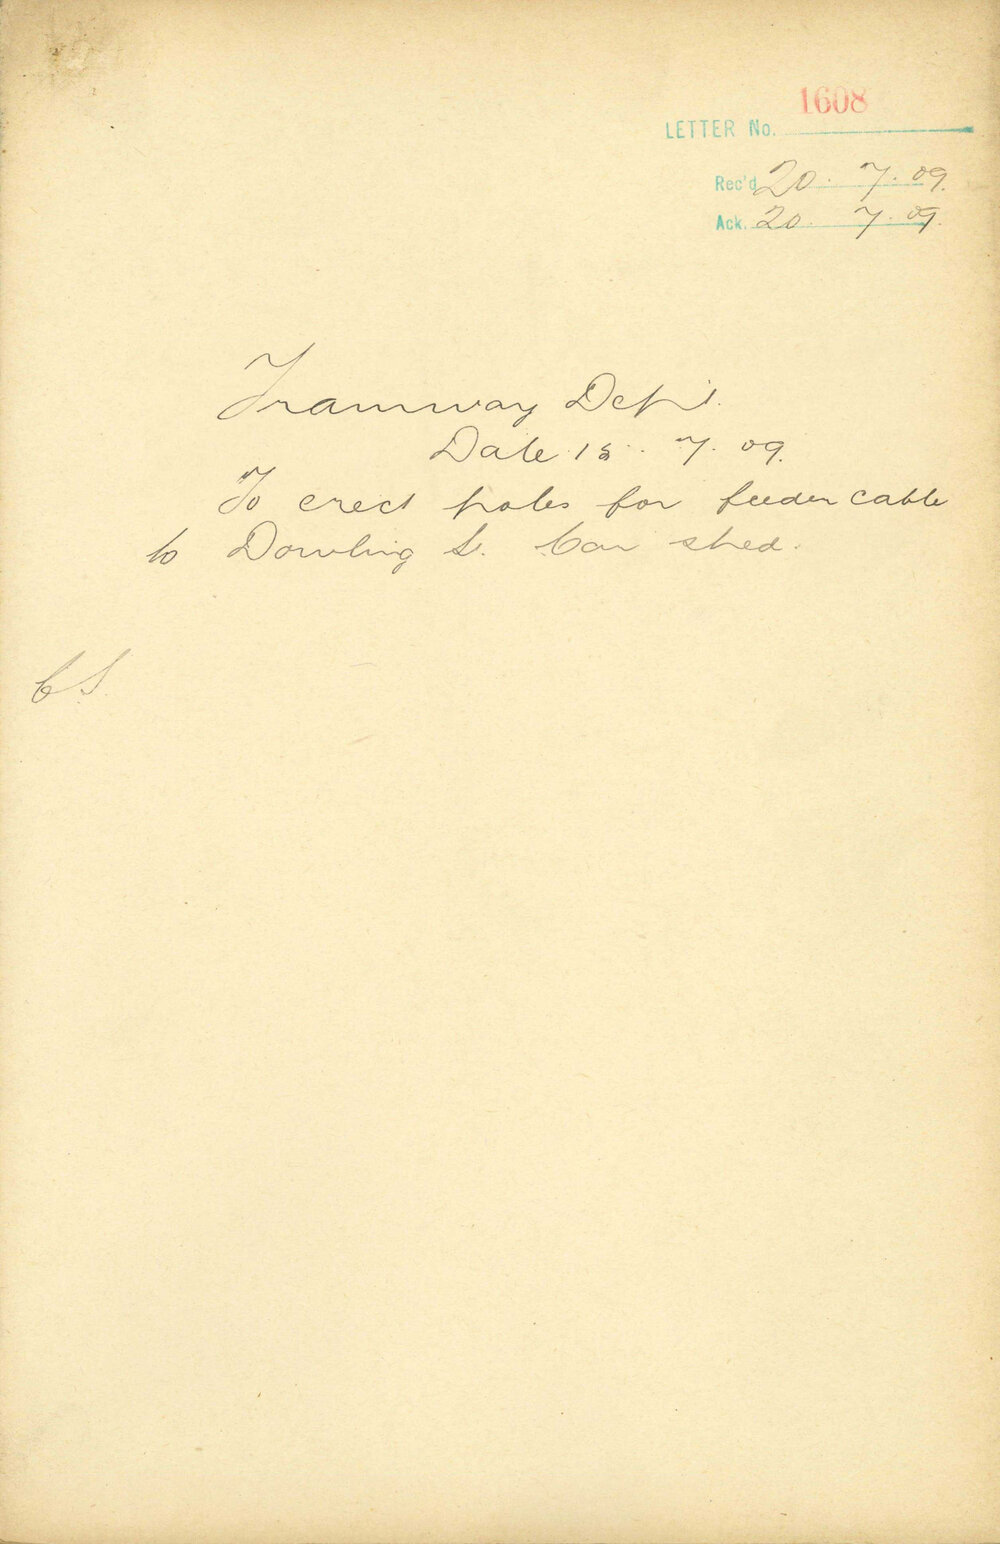 1608
LETTER No.
Rec'd 20. 7. 09.
Ack. 20. 7. 09.
Tramway Dept.
Date 15. 7. 09.
To erect poles for feeder cable
to Dowling St. Car shed.
CS.